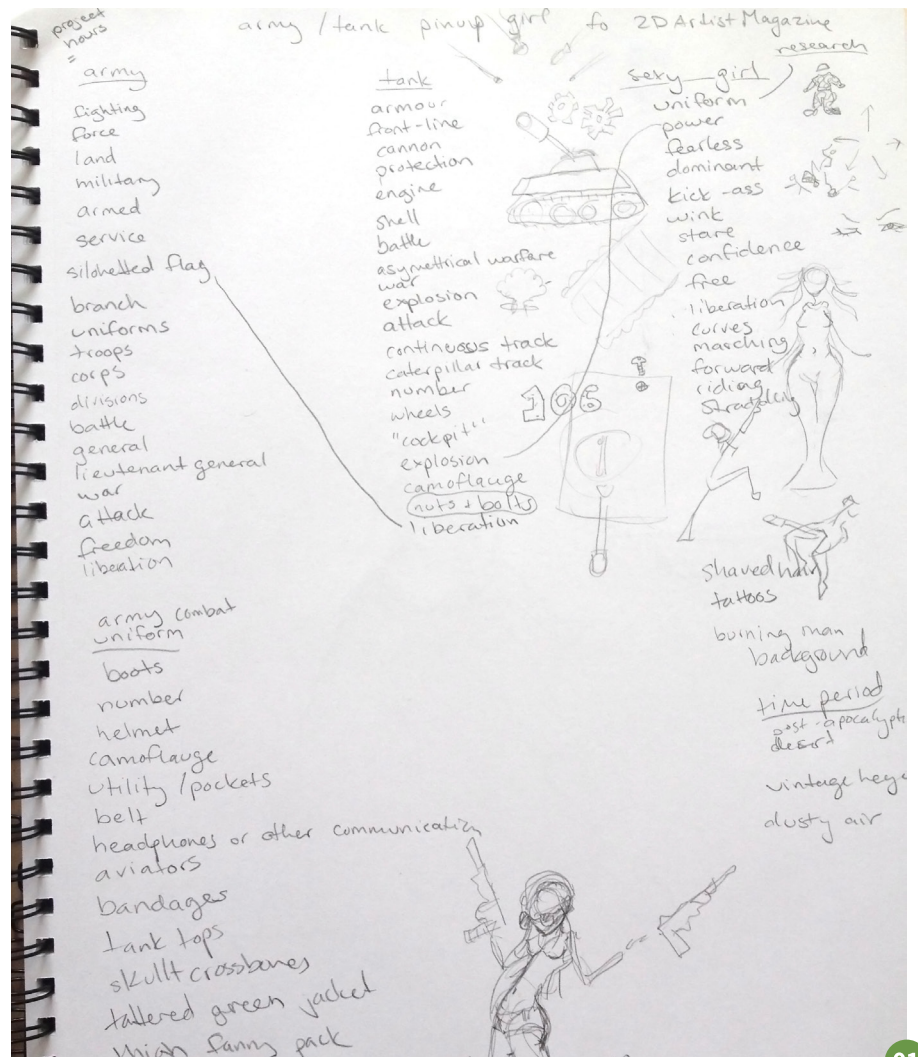 project
hours
=
army / tank pinup girl fo 2D Artist Magazine
research
army
fighting
force
land
military
armed
service
silohetted flag
branch
uniforms
troops
corps
divisions
battle
general
lieutenant general
war
attack
freedom
libeation
army combat
uniform
boots
number
helmet
camoflauge
utility / pockets
belt
headphones or other communication
aviators
bandages
tank tops
skull + crossbones
tattered green jacket
thigh fanny pack
tank
armour
front-line
cannon
protection
engine
shell
battle
asymettrical warfare
war
explosion
attack
continuous track
caterpillar track
number
wheels
"cockpit"
explosion
camoflauge
nuts + bolts
liberation
106
sexy girl
uniform
power
fearless
dominant
kick-ass
wink
stare
confidence
free
liberation
curves
marching
forward
riding
straddling
shaved hair
tattoos
burning man
background
time period
post-apocalypti
desert
vintage
dusty air